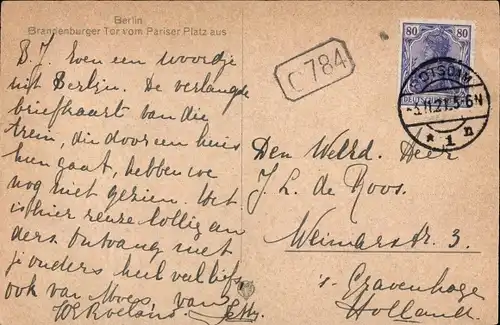 Berlin
Brandenburger Tor vom Pariser Platz aus
B. J. Even een woordje
uit Berlijn. De verlangde
briefkaart van die
trein, die door een huis
heen gaat, hebben we
nog niet gezien. Het
is hier reuze lollig an
ders. Ontvang met
je ouders heel veel liefs,
ook van Moes, van
Jetty.
W. Roelans.
C 784
80 80
POTSDAM
-3.11.21.5-6N
* 1 n
Den Weled. Heer
J. L. de Roos.
Weimarstr. 3.
's Gravenhage
Holland.